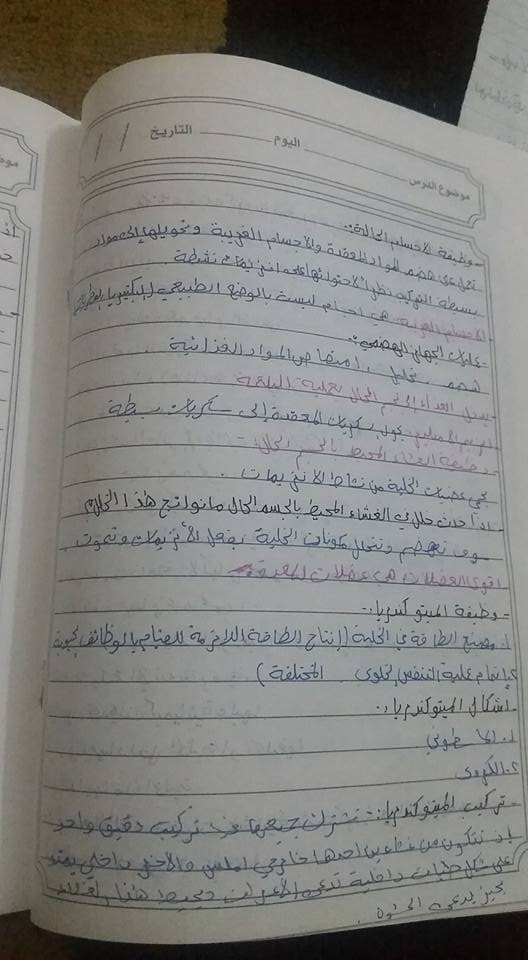 موضوع الدرس اليوم التاريخ / /
- وظيفة الاجسام الحالة :-
تعمل على هضم المواد المعقدة والاجسام الغريبة وتحويلها إلى مواد
بسيطة التركيب نظراً لاحتوائها على انزيمات نشطة .
الاجسام الغريبة هي اجسام ليست بالوضع الطبيعي (البكتيريا
- عمليات الجهاز الهضمي :-
هضم . تحليل . امتصاص المواد الغذائية
يدخل الغذاء الجسم الحال بعملية البلعمة
انزيم الاميليز يحول سكريات المعقدة إلى سكريات بسيطة
- وظيفة الغشاء المحيط بالجسم الحال :-
يحمي عضيات الخلية من نشاط الانزيمات .
اذا حدث خلل في الغشاء المحيط بالجسم الحال ما نواتج هذا الخلل
سوف تهضم وتتحلل مكونات الخلية بفعل الأنزيمات وتموت
اقوى العضلات هي عضلات المعدة
- وظيفة الميتوكندريا :-
١. مصنع الطاقة في الخلية (إنتاج الطاقة اللازمة للقيام بالوظائف الحيوية
٢. إتمام عملية التنفس الخلوي المختلفة )
- أشكال الميتوكندريا :-
١. طولي
٢. الكروي
- تركيب الميتوكندريا :- تشترك جميعها في تركيب دقيق واحد
إذ تتكون من غشاءين احدهما خارجي املس والآخر داخلي يمتد
على شكل طيات داخلية تدعى الأعراف ويحيط هذا الغشاء
بحيز يدعى الحشوة .